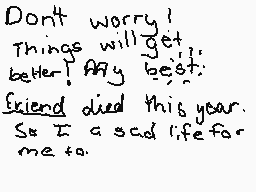 Don't worry!
Things will get
better! My best
friend died this year.
So I a sad life for
me to.